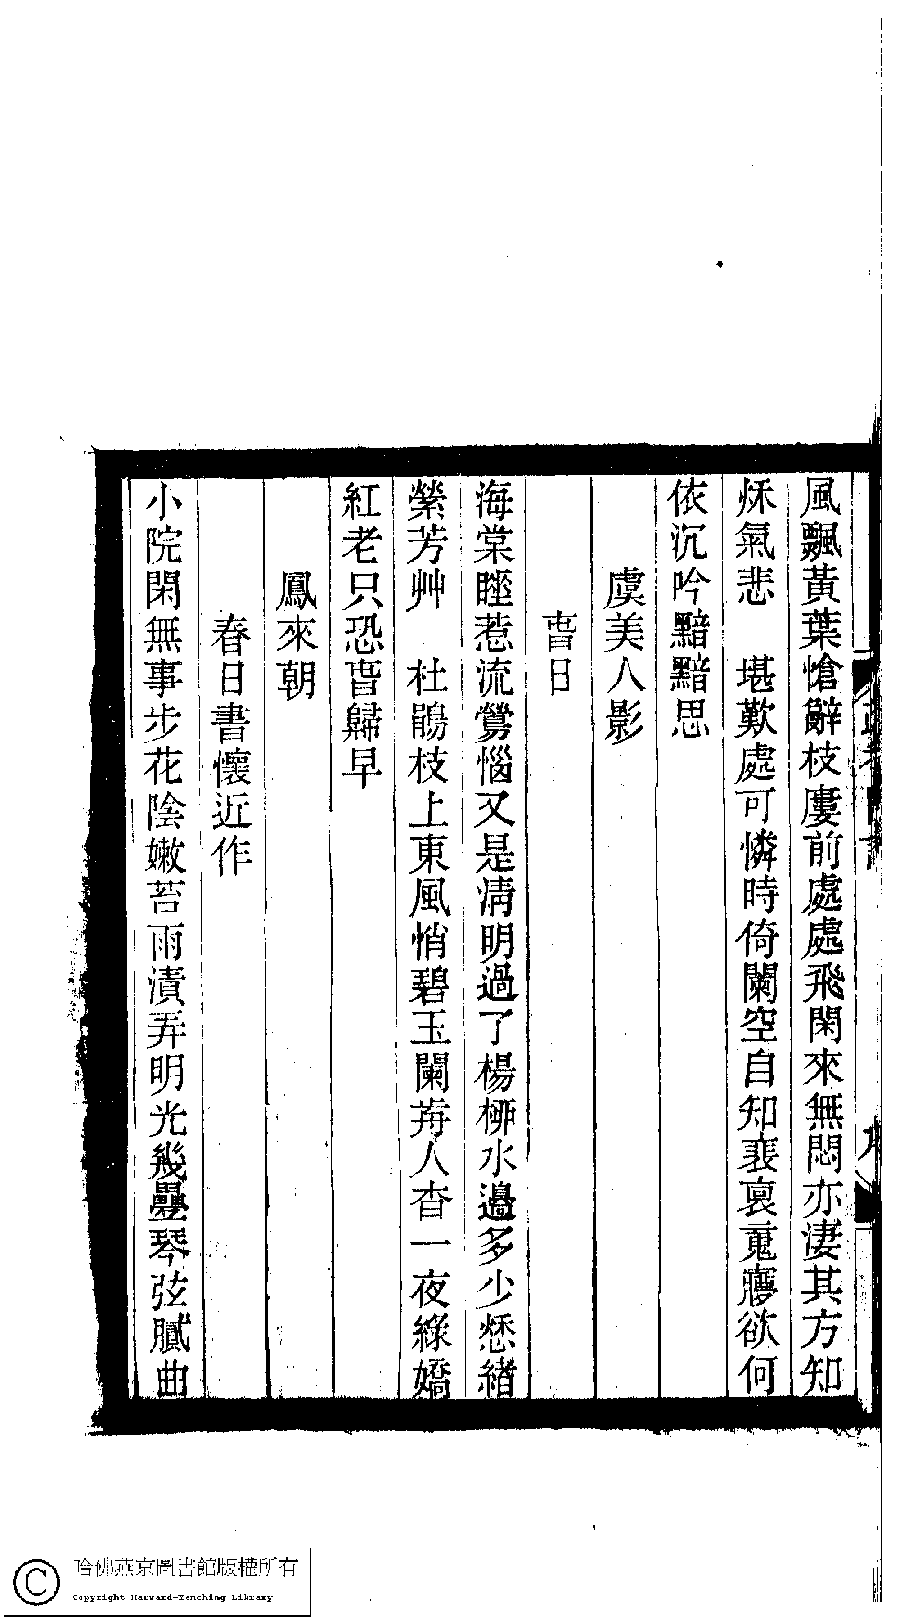 風飄黃葉愴辭枝廔前處處飛閑來無悶亦淒其方知
秌氣悲　堪歎處可憐時倚闌空自知欲何
依沉吟黯黯思
虞美人影
旾日
海棠睡惹流鶯惱又是淸明過了楊桺水邊多少愁緒
縈芳艸　杜鵑枝上東風悄碧玉闌人杳一夜綠嬌
紅老只恐旾歸早
鳳來朝
春日書懷近作
小院閑無事步花陰嫩苔雨漬弄明光幾疊琴弦膩曲
哈佛燕京圖書館版權所有
Copyright Harvard-Yenching Library